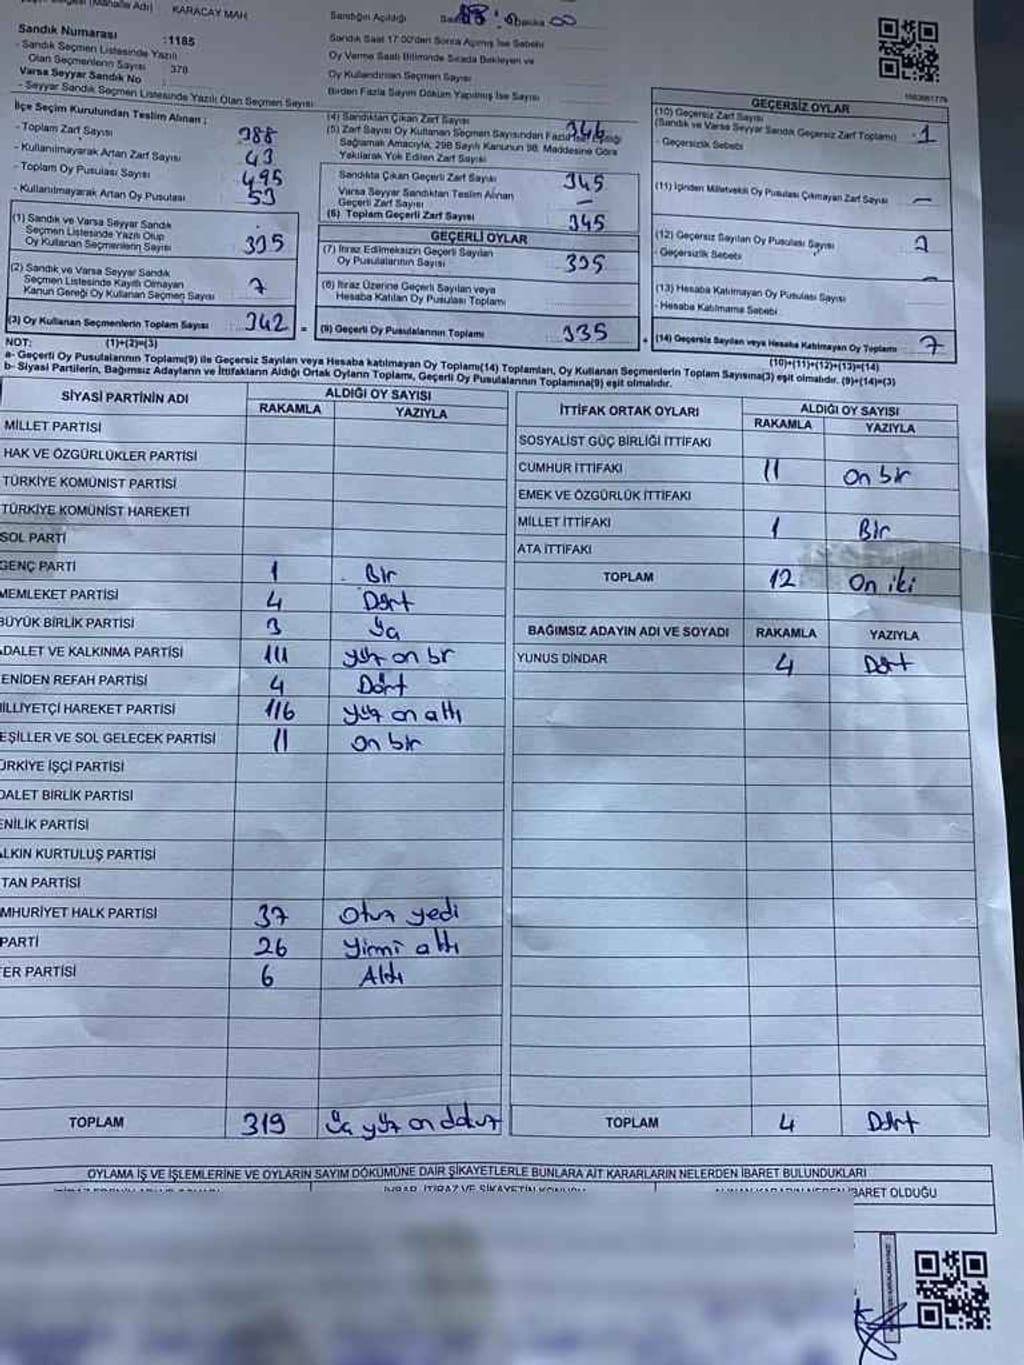 KARACAY MAH
Sandık Numarası :1185
- Sandık Seçmen Listesinde Yazılı
Olan Seçmenlerin Sayısı 378
Varsa Seyyar Sandık No
- Seyyar Sandık Seçmen Listesinde Yazılı Olan Seçmen Sayısı
İlçe Seçim Kurulundan Teslim Alınan ;
- Toplam Zarf Sayısı 388
- Kullanılmayarak Artan Zarf Sayısı 43
- Toplam Oy Pusulası Sayısı 495
- Kullanılmayarak Artan Oy Pusulası 53
(1) Sandık ve Varsa Seyyar Sandık
Seçmen Listesinde Yazılı Olup
Oy Kullanan Seçmenlerin Sayısı 335
(2) Sandık ve Varsa Seyyar Sandık
Seçmen Listesinde Kayıtlı Olmayan
Kanun Gereği Oy Kullanan Seçmen Sayısı 7
(3) Oy Kullanan Seçmenlerin Toplam Sayısı 342 =
Sandığın Açıldığı
Sandık Saat 17:00'den Sonra Açılmış İse Sebebi
Oy Verme Saati Bitiminde Sırada Bekleyen ve
Oy Kullandırılan Seçmen Sayısı
Birden Fazla Sayım Döküm Yapılmış İse Sayısı
(4) Sandıktan Çıkan Zarf Sayısı 346
(5) Zarf Sayısı Oy Kullanan Seçmen Sayısından Fazla İse Eşitliği
Sağlamak Amacıyla, 298 Sayılı Kanunun 98. Maddesine Göre
Yakılarak Yok Edilen Zarf Sayısı
Sandıkta Çıkan Geçerli Zarf Sayısı 345
Varsa Seyyar Sandıktan Teslim Alınan
Geçerli Zarf Sayısı —
(6) Toplam Geçerli Zarf Sayısı 345
GEÇERLİ OYLAR
(7) İtiraz Edilmeksizin Geçerli Sayılan
Oy Pusulalarının Sayısı 335
(8) İtiraz Üzerine Geçerli Sayılan veya
Hesaba Katılan Oy Pusulası Toplamı
(9) Geçerli Oy Pusulalarının Toplamı 335 +
GEÇERSİZ OYLAR
(10) Geçersiz Zarf Sayısı
(Sandık ve Varsa Seyyar Sandık Geçersiz Zarf Toplamı) 1
- Geçersizlik Sebebi
(11) İçinden Milletvekili Oy Pusulası Çıkmayan Zarf Sayısı —
(12) Geçersiz Sayılan Oy Pusulası Sayısı
- Geçersizlik Sebebi
(13) Hesaba Katılmayan Oy Pusulası Sayısı —
- Hesaba Katılmama Sebebi
(14) Geçersiz Sayılan veya Hesaba Katılmayan Oy Toplamı 7
NOT: (1)+(2)=(3) (10)+(11)+(12)+(13)=(14)
a- Geçerli Oy Pusulalarının Toplamı(9) ile Geçersiz Sayılan veya Hesaba katılmayan Oy Toplamı(14) Toplamları, Oy Kullanan Seçmenlerin Toplam Sayısına(3) eşit olmalıdır. (9)+(14)=(3)
b- Siyasi Partilerin, Bağımsız Adayların ve İttifakların Aldığı Ortak Oyların Toplamı, Geçerli Oy Pusulalarının Toplamına(9) eşit olmalıdır.
SİYASİ PARTİNİN ADI ALDIĞI OY SAYISI
RAKAMLA YAZIYLA
MİLLET PARTİSİ
HAK VE ÖZGÜRLÜKLER PARTİSİ
TÜRKİYE KOMÜNİST PARTİSİ
TÜRKİYE KOMÜNİST HAREKETİ
SOL PARTİ
GENÇ PARTİ 1 Bir
MEMLEKET PARTİSİ 4 Dört
BÜYÜK BİRLİK PARTİSİ 3 Üç
ADALET VE KALKINMA PARTİSİ 111 yüz on bir
ENİDEN REFAH PARTİSİ 4 Dört
İLLİYETÇİ HAREKET PARTİSİ 116 yüz on altı
EŞİLLER VE SOL GELECEK PARTİSİ 11 on bir
ÜRKİYE İŞÇİ PARTİSİ
DALET BİRLİK PARTİSİ
ENİLİK PARTİSİ
ALKIN KURTULUŞ PARTİSİ
TAN PARTİSİ
MHURİYET HALK PARTİSİ 37 otuz yedi
PARTİ 26 yirmi altı
ER PARTİSİ 6 Altı
TOPLAM 319 Üç yüz on dokuz
İTTİFAK ORTAK OYLARI ALDIĞI OY SAYISI
RAKAMLA YAZIYLA
SOSYALİST GÜÇ BİRLİĞİ İTTİFAKI
CUMHUR İTTİFAKI 11 on bir
EMEK VE ÖZGÜRLÜK İTTİFAKI
MİLLET İTTİFAKI 1 Bir
ATA İTTİFAKI
TOPLAM 12 On iki
BAĞIMSIZ ADAYIN ADI VE SOYADI RAKAMLA YAZIYLA
YUNUS DİNDAR 4 Dört
TOPLAM 4 Dört
OYLAMA İŞ VE İŞLEMLERİNE VE OYLARIN SAYIM DÖKÜMÜNE DAİR ŞİKAYETLERLE BUNLARA AİT KARARLARIN NELERDEN İBARET BULUNDUKLARI
İBARET OLDUĞU